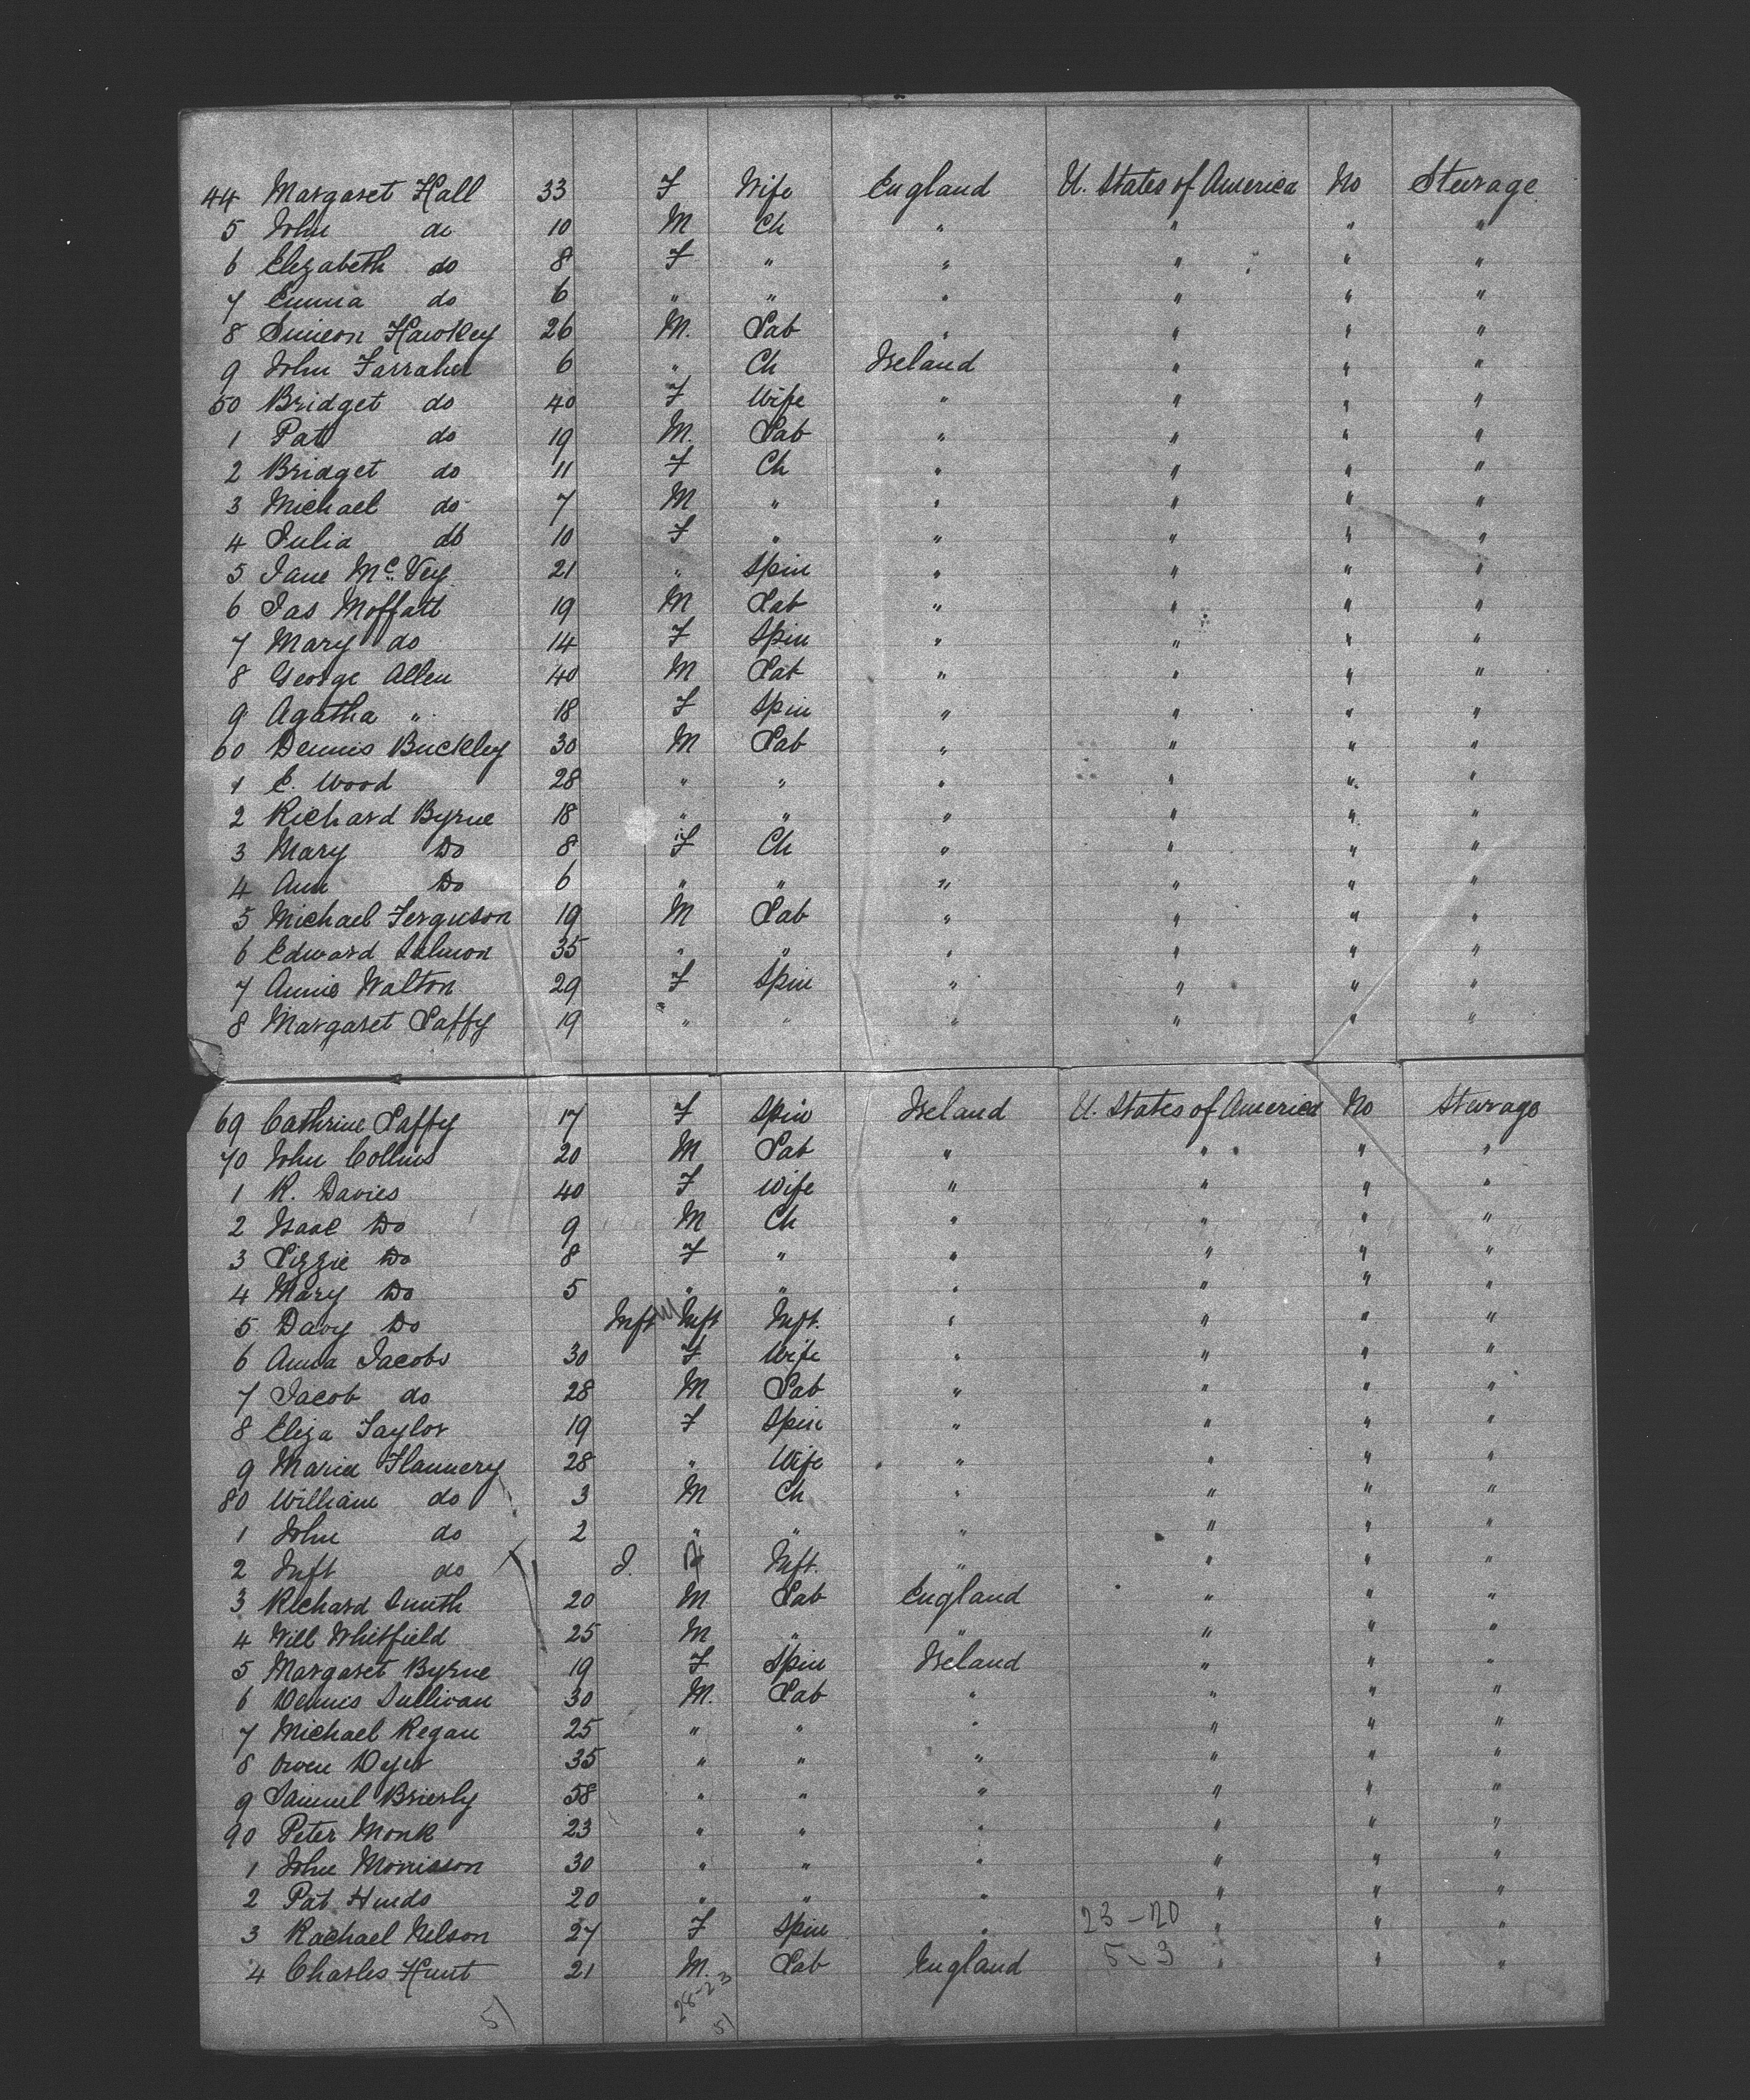 44 Margaret Hall 33 F Wife England U. States of America No Steerage
5 John do 10 M Ch " " " "
6 Elizabeth do 8 F " " " " "
7 Emma do 6 " " " " " "
8 Simeon Hawkey 26 M. Lab " " " "
9 John Farraher 6 " Ch Ireland " " "
50 Bridget do 40 F Wife " " " "
1 Pat do 19 M. Lab " " " "
2 Bridget do 11 F Ch " " " "
3 Michael do 7 M " " " " "
4 Julia do 10 F " " " " "
5 Jane Mc Vey 21 " Spin " " " "
6 Jas Moffatt 19 M Lab " " " "
7 Mary do 14 F Spin " " " "
8 George Allen 40 M Lab " " " "
9 Agatha " 18 F Spin " " " "
60 Dennis Buckley 30 M Lab " " " "
1 E. Wood 28 " " " " " "
2 Richard Byrne 18 " " " " " "
3 Mary Do 8 F Ch " " " "
4 Ann Do 6 " " " " " "
5 Michael Ferguson 19 M Lab " " " "
6 Edward Salmon 35 " " " " " "
7 Annie Walton 29 F Spin " " " "
8 Margaret Laffy 19 " " " " " "
69 Cathrine Laffy 17 F Spin Ireland U. States of America No Steerage
70 John Collins 20 M Lab " " " "
1 R. Davies 40 F Wife " " " "
2 Isaac Do 9 M Ch " " " "
3 Lizzie Do 8 F " " " " "
4 Mary Do 5 " " " " " "
5 Davy Do Inft M Inft Inft. " " " "
6 Anna Jacobs 30 F Wife " " " "
7 Jacob do 28 M Lab " " " "
8 Eliza Taylor 19 F Spin " " " "
9 Maria Flannery 28 " Wife " " " "
80 William do 3 M Ch " " " "
1 John do 2 " " " " " "
2 Inft do I. Inft. " " " "
3 Richard Smith 20 M Lab England " " "
4 Will Whitfield 25 M " " " " "
5 Margaret Byrne 19 F Spin Ireland " " "
6 Dennis Sullivan 30 M. Lab " " " "
7 Michael Regan 25 " " " " " "
8 Owen Dyer 35 " " " " " "
9 Samuel Brierly 58 " " " " " "
90 Peter Monk 23 " " " " " "
1 John Morrisson 30 " " " " " "
2 Pat Hinds 20 " " " " " "
3 Rachael Nelson 27 F Spin " 23-20 " " "
4 Charles Hunt 21 M. Lab England 5 3 " " "
51 28-23
51